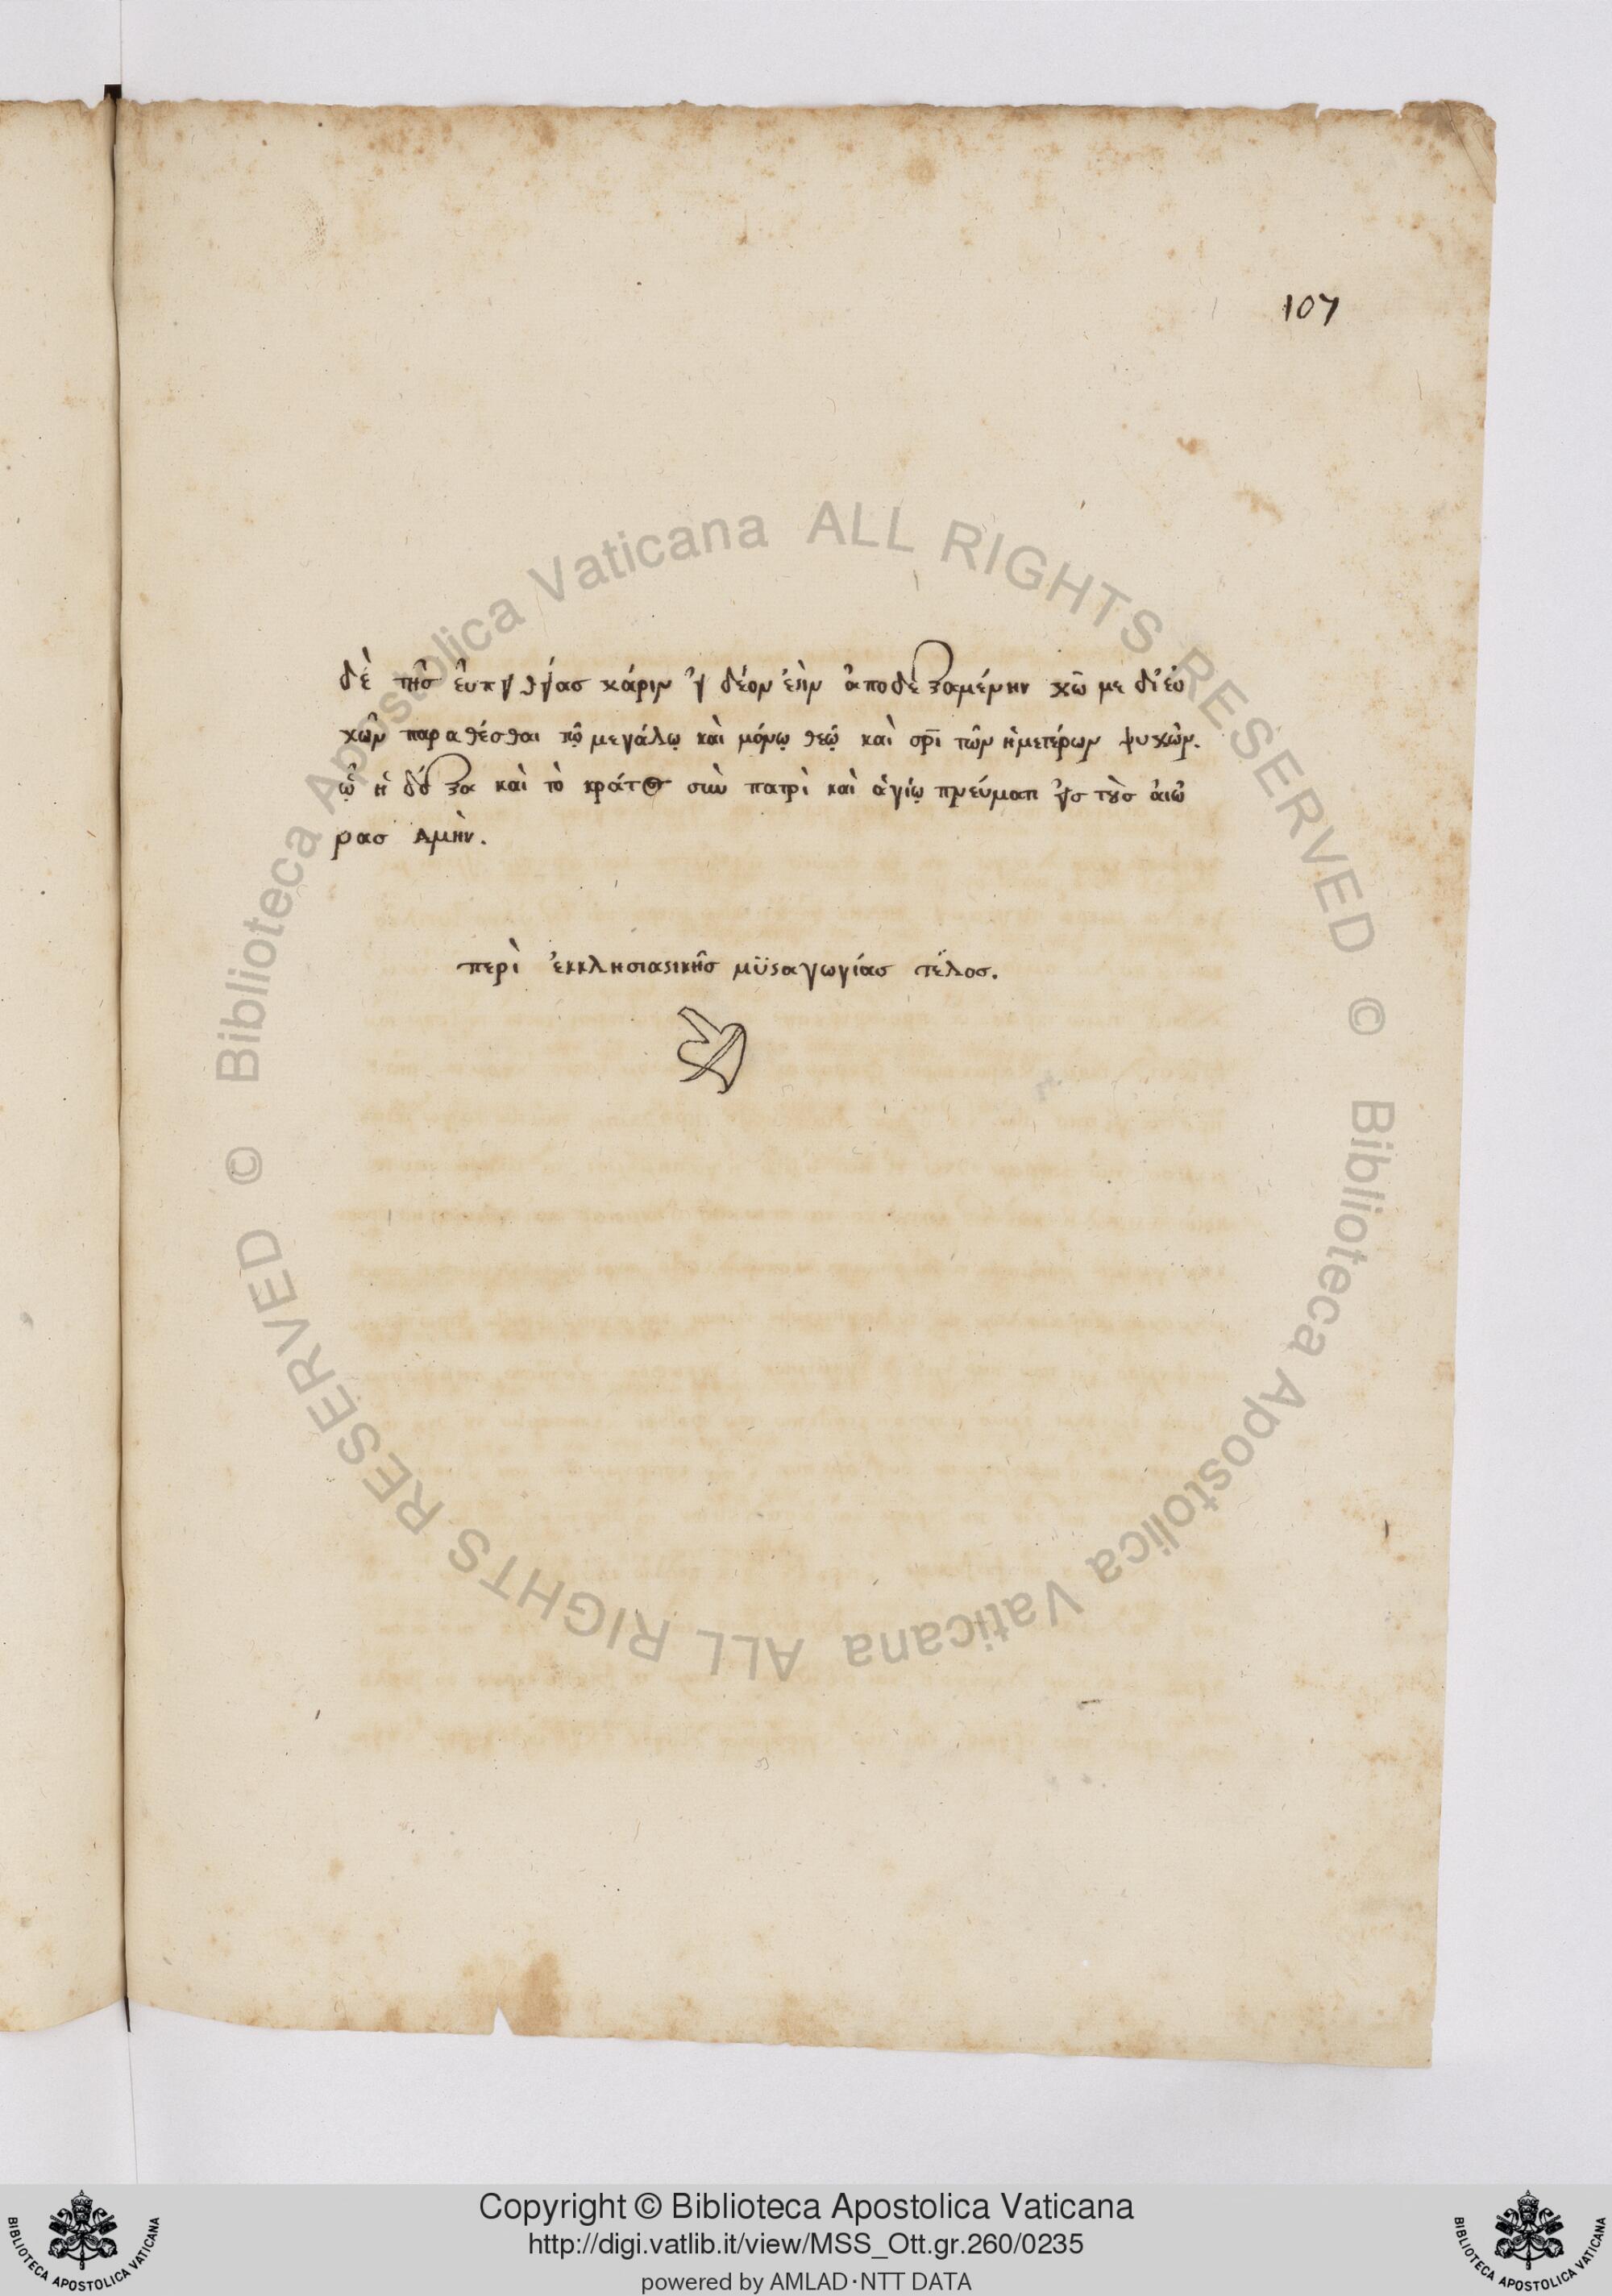 107
δὲ τῆς ἐυπειθείας χάριν εἰ δέον ἐὴν ἀποδεξαμένην χῶ με δι' ἐυ
χῶν παραθέσθαι τῶ μεγάλῳ καὶ μόνῳ θεῷ καὶ σρι τῶν ἡμετέρων ψυχῶν.
ᾧ ἡ δόξα καὶ τὸ κράτος σὺν πατρὶ καὶ ἁγίῳ πνεύματι εἰς τοὺς ἀιῶ
νας Αμὴν.
περὶ ἐκκλησιαστικῆς μϋσταγωγίας τέλος.
© Biblioteca Apostolica Vaticana ALL RIGHTS RESERVED
© Biblioteca Apostolica Vaticana ALL RIGHTS RESERVED
Copyright © Biblioteca Apostolica Vaticana
http://digi.vatlib.it/view/MSS_Ott.gr.260/0235
powered by AMLAD·NTT DATA
BIBLIOTECA APOSTOLICA VATICANA
BIBLIOTECA APOSTOLICA VATICANA